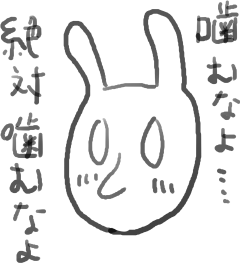 噛むなよ…
絶対噛むなよ